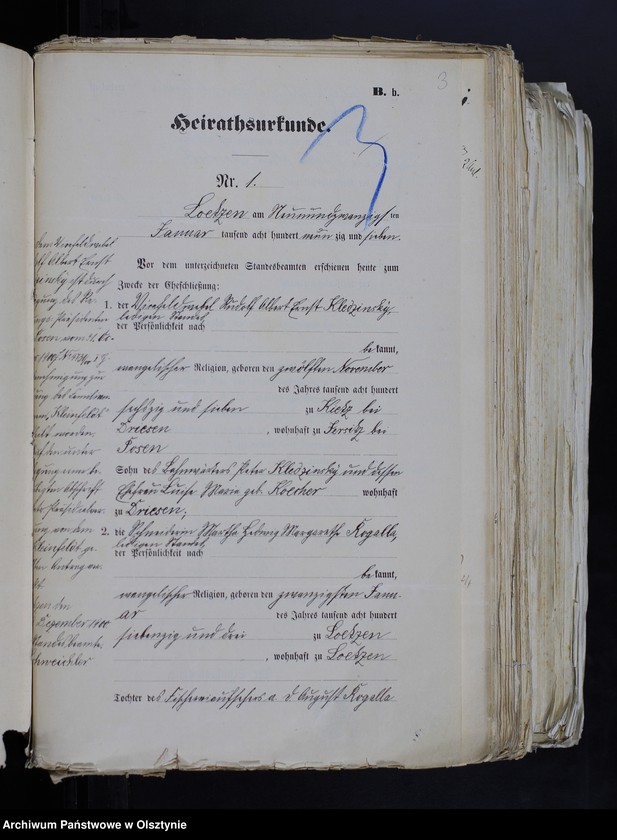 3
B. b.
Heirathsurkunde.
3
Nr. 1.
Loetzen am Neunundzwanzigsten
Januar tausend acht hundert neunzig und sieben.
Vor dem unterzeichneten Standesbeamten erschienen heute zum
Zwecke der Eheschließung:
1. der Vizefeldwebel Rudolf Albert Ernst Kledzinsky,
ledigen Standes,
der Persönlichkeit nach
bekannt,
evangelischer Religion, geboren den zwölften November
des Jahres tausend acht hundert
sechszig und sieben zu Kietz bei
Driesen, wohnhaft zu Jersitz bei
Posen
Sohn des Bahnwärters Peter Kledzinsky und dessen
Ehefrau Luise Marie geb. Koecher wohnhaft
zu Driesen;
2. die Schneiderin Martha Hedwig Margarethe Rogalla,
ledigen Standes,
der Persönlichkeit nach
bekannt,
evangelischer Religion, geboren den zwanzigsten Janu-
ar des Jahres tausend acht hundert
siebenzig und drei zu Loetzen
, wohnhaft zu Loetzen
Tochter des Fischereiaufsehers a. D August Rogalla
Vizefeldwebel
Albert Ernst
ist durch
des Re-
Präsidenten
Posen vom 11.
zur
Kleinfeldt
werden.
Abschrift
von dem
Kleinfeldt ge-
Antrag
den
Dezember 1900
Standesbeamte.
Archiwum Państwowe w Olsztynie